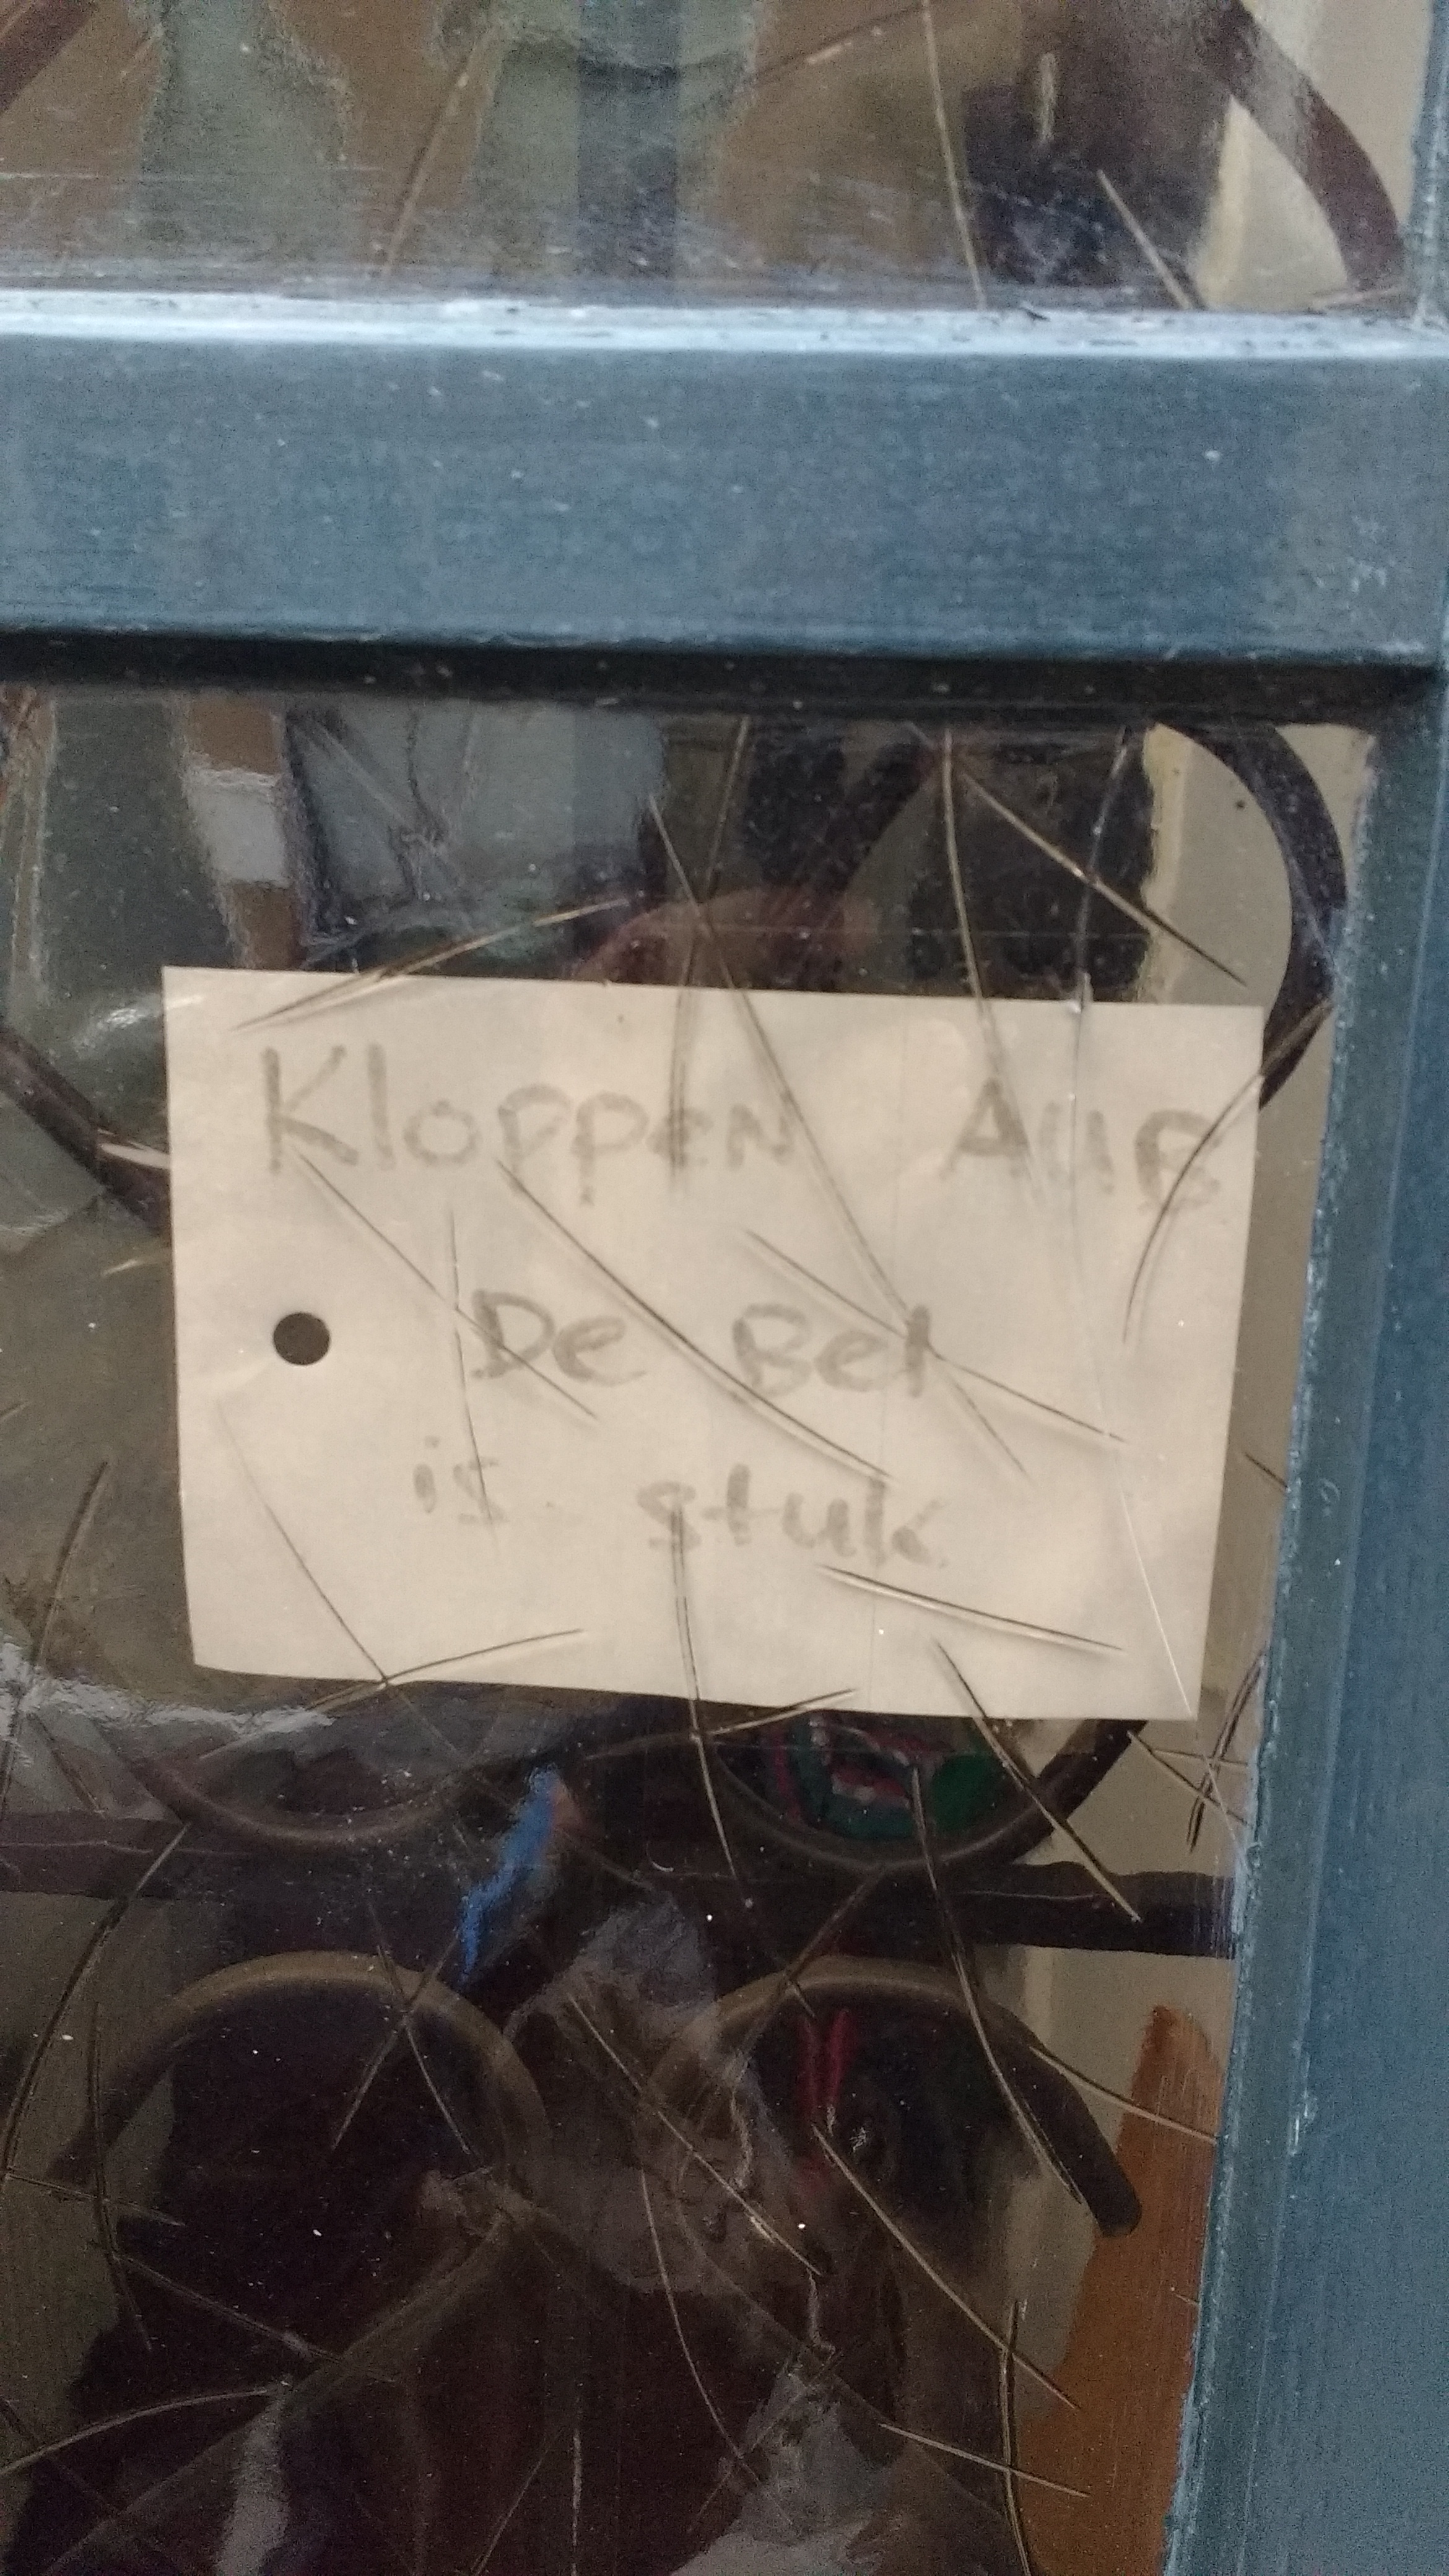 Kloppen AUB
De Bel
is stuk